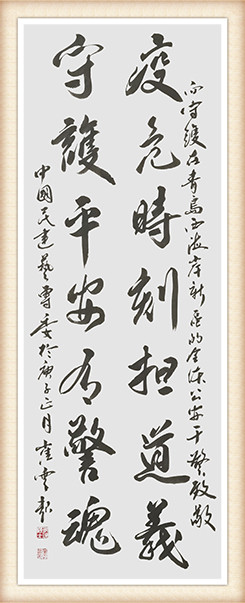 向守護在青島西海岸新區的全体公安干警致敬
疫危時刻担道義
守護平安有警魂
中國民建藝專委於庚子正月